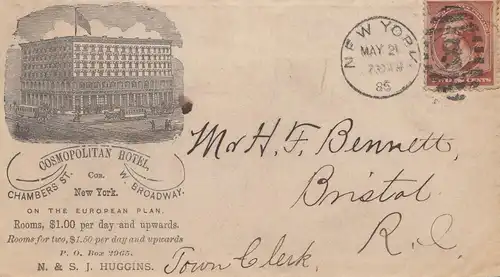 NEW YORK
MAY 21
730AM
85
TWO CENTS
COSMOPOLITAN HOTEL,
CHAMBERS ST. Cor. W. BROADWAY.
New York.
ON THE EUROPEAN PLAN.
Rooms, $1.00 per day and upwards.
Rooms for two, $1.50 per day and upwards
P. O. Box 2965.
N. & S. J. HUGGINS.
Mr H. F. Bennett,
Bristol
R.I.
Town Clerk.